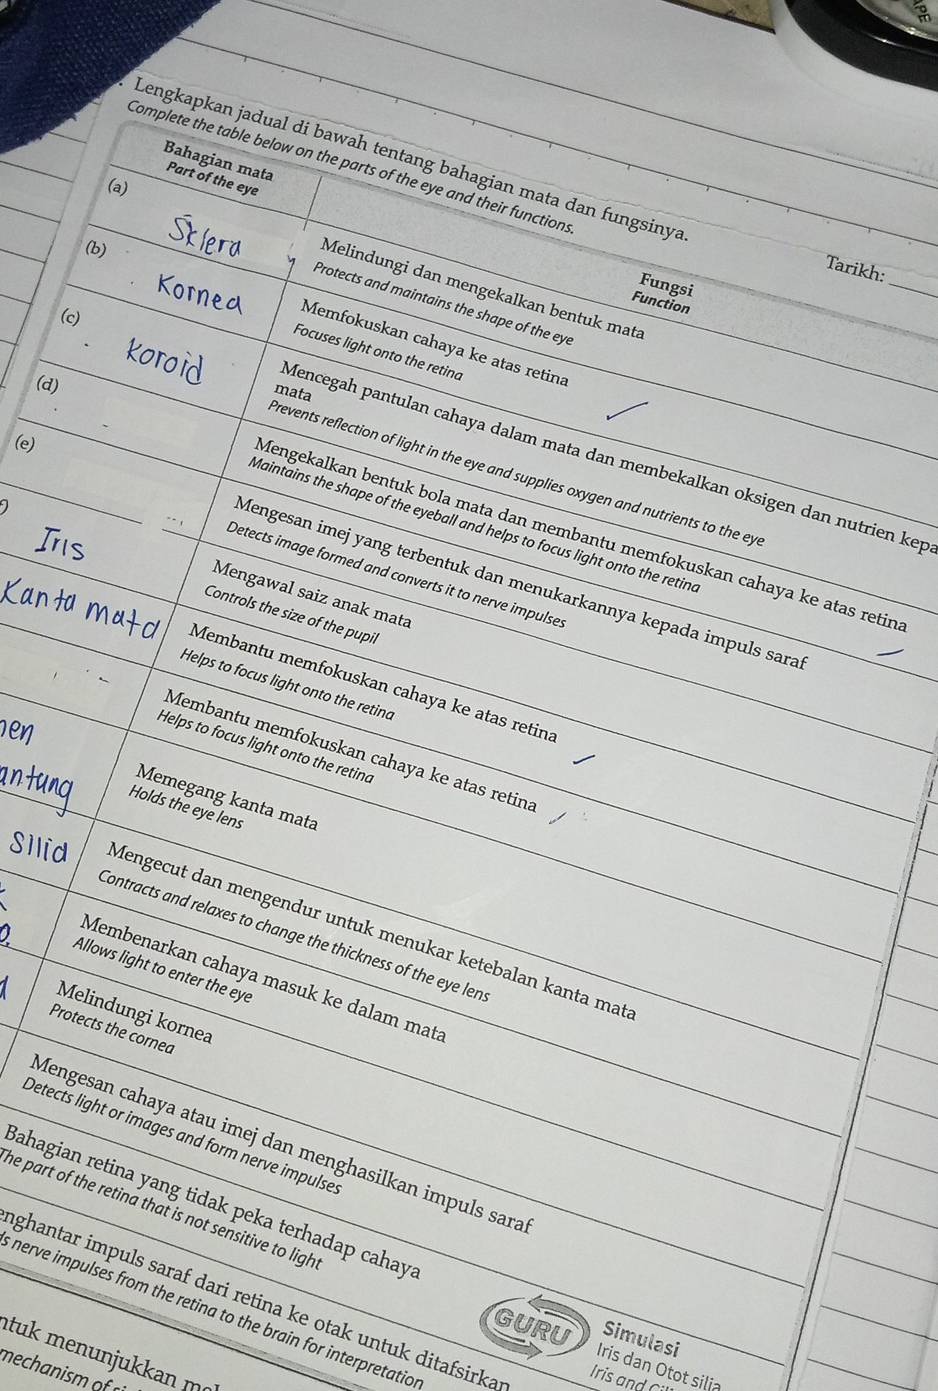 Lengkapkan jadual di bawah tentang bahagian mata dan fungsinya.
Complete the table below on the parts of the eye and their functions.
Tarikh:
Bahagian mata
Part of the eye
Fungsi
Function
(a)
Sklera
Melindungi dan mengekalkan bentuk mata
Protects and maintains the shape of the eye
(b)
Kornea
Memfokuskan cahaya ke atas retina
Focuses light onto the retina
(c)
Koroid
Mencegah pantulan cahaya dalam mata dan membekalkan oksigen dan nutrien kepa
mata
Prevents reflection of light in the eye and supplies oxygen and nutrients to the eye
(d)
Mengekalkan bentuk bola mata dan membantu memfokuskan cahaya ke atas retina
Maintains the shape of the eyeball and helps to focus light onto the retina
(e)
Mengesan imej yang terbentuk dan menukarkannya kepada impuls saraf
Detects image formed and converts it to nerve impulses
Iris
Mengawal saiz anak mata
Controls the size of the pupil
Kanta mata
Membantu memfokuskan cahaya ke atas retina
Helps to focus light onto the retina
Membantu memfokuskan cahaya ke atas retina
Helps to focus light onto the retina
men
antung
Memegang kanta mata
Holds the eye lens
silia
Mengecut dan mengendur untuk menukar ketebalan kanta mata
Contracts and relaxes to change the thickness of the eye lens
Membenarkan cahaya masuk ke dalam mata
Allows light to enter the eye
Melindungi kornea
Protects the cornea
Mengesan cahaya atau imej dan menghasilkan impuls saraf
Detects light or images and form nerve impulses
Bahagian retina yang tidak peka terhadap cahaya
The part of the retina that is not sensitive to light
enghantar impuls saraf dari retina ke otak untuk ditafsirkan
ds nerve impulses from the retina to the brain for interpretation
GURU
Simulasi
Iris dan Otot silia
Iris and
ntuk menunjukkan
mechanism of